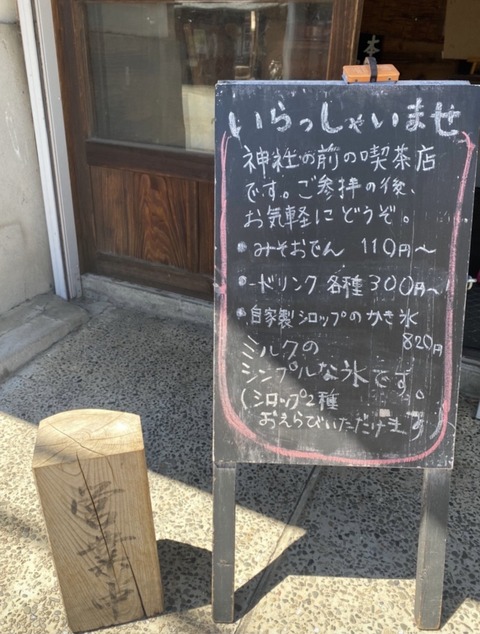 いらっしゃいませ
神社の前の喫茶店
です。ご参拝の後、
お気軽にどうぞ。
• みそおでん 110円〜
• ドリンク 各種 300円〜
• 自家製シロップのかき氷
820円
ミルクの
シンプルな氷です。
(シロップ2種
おえらびいただけます)
営業中
本